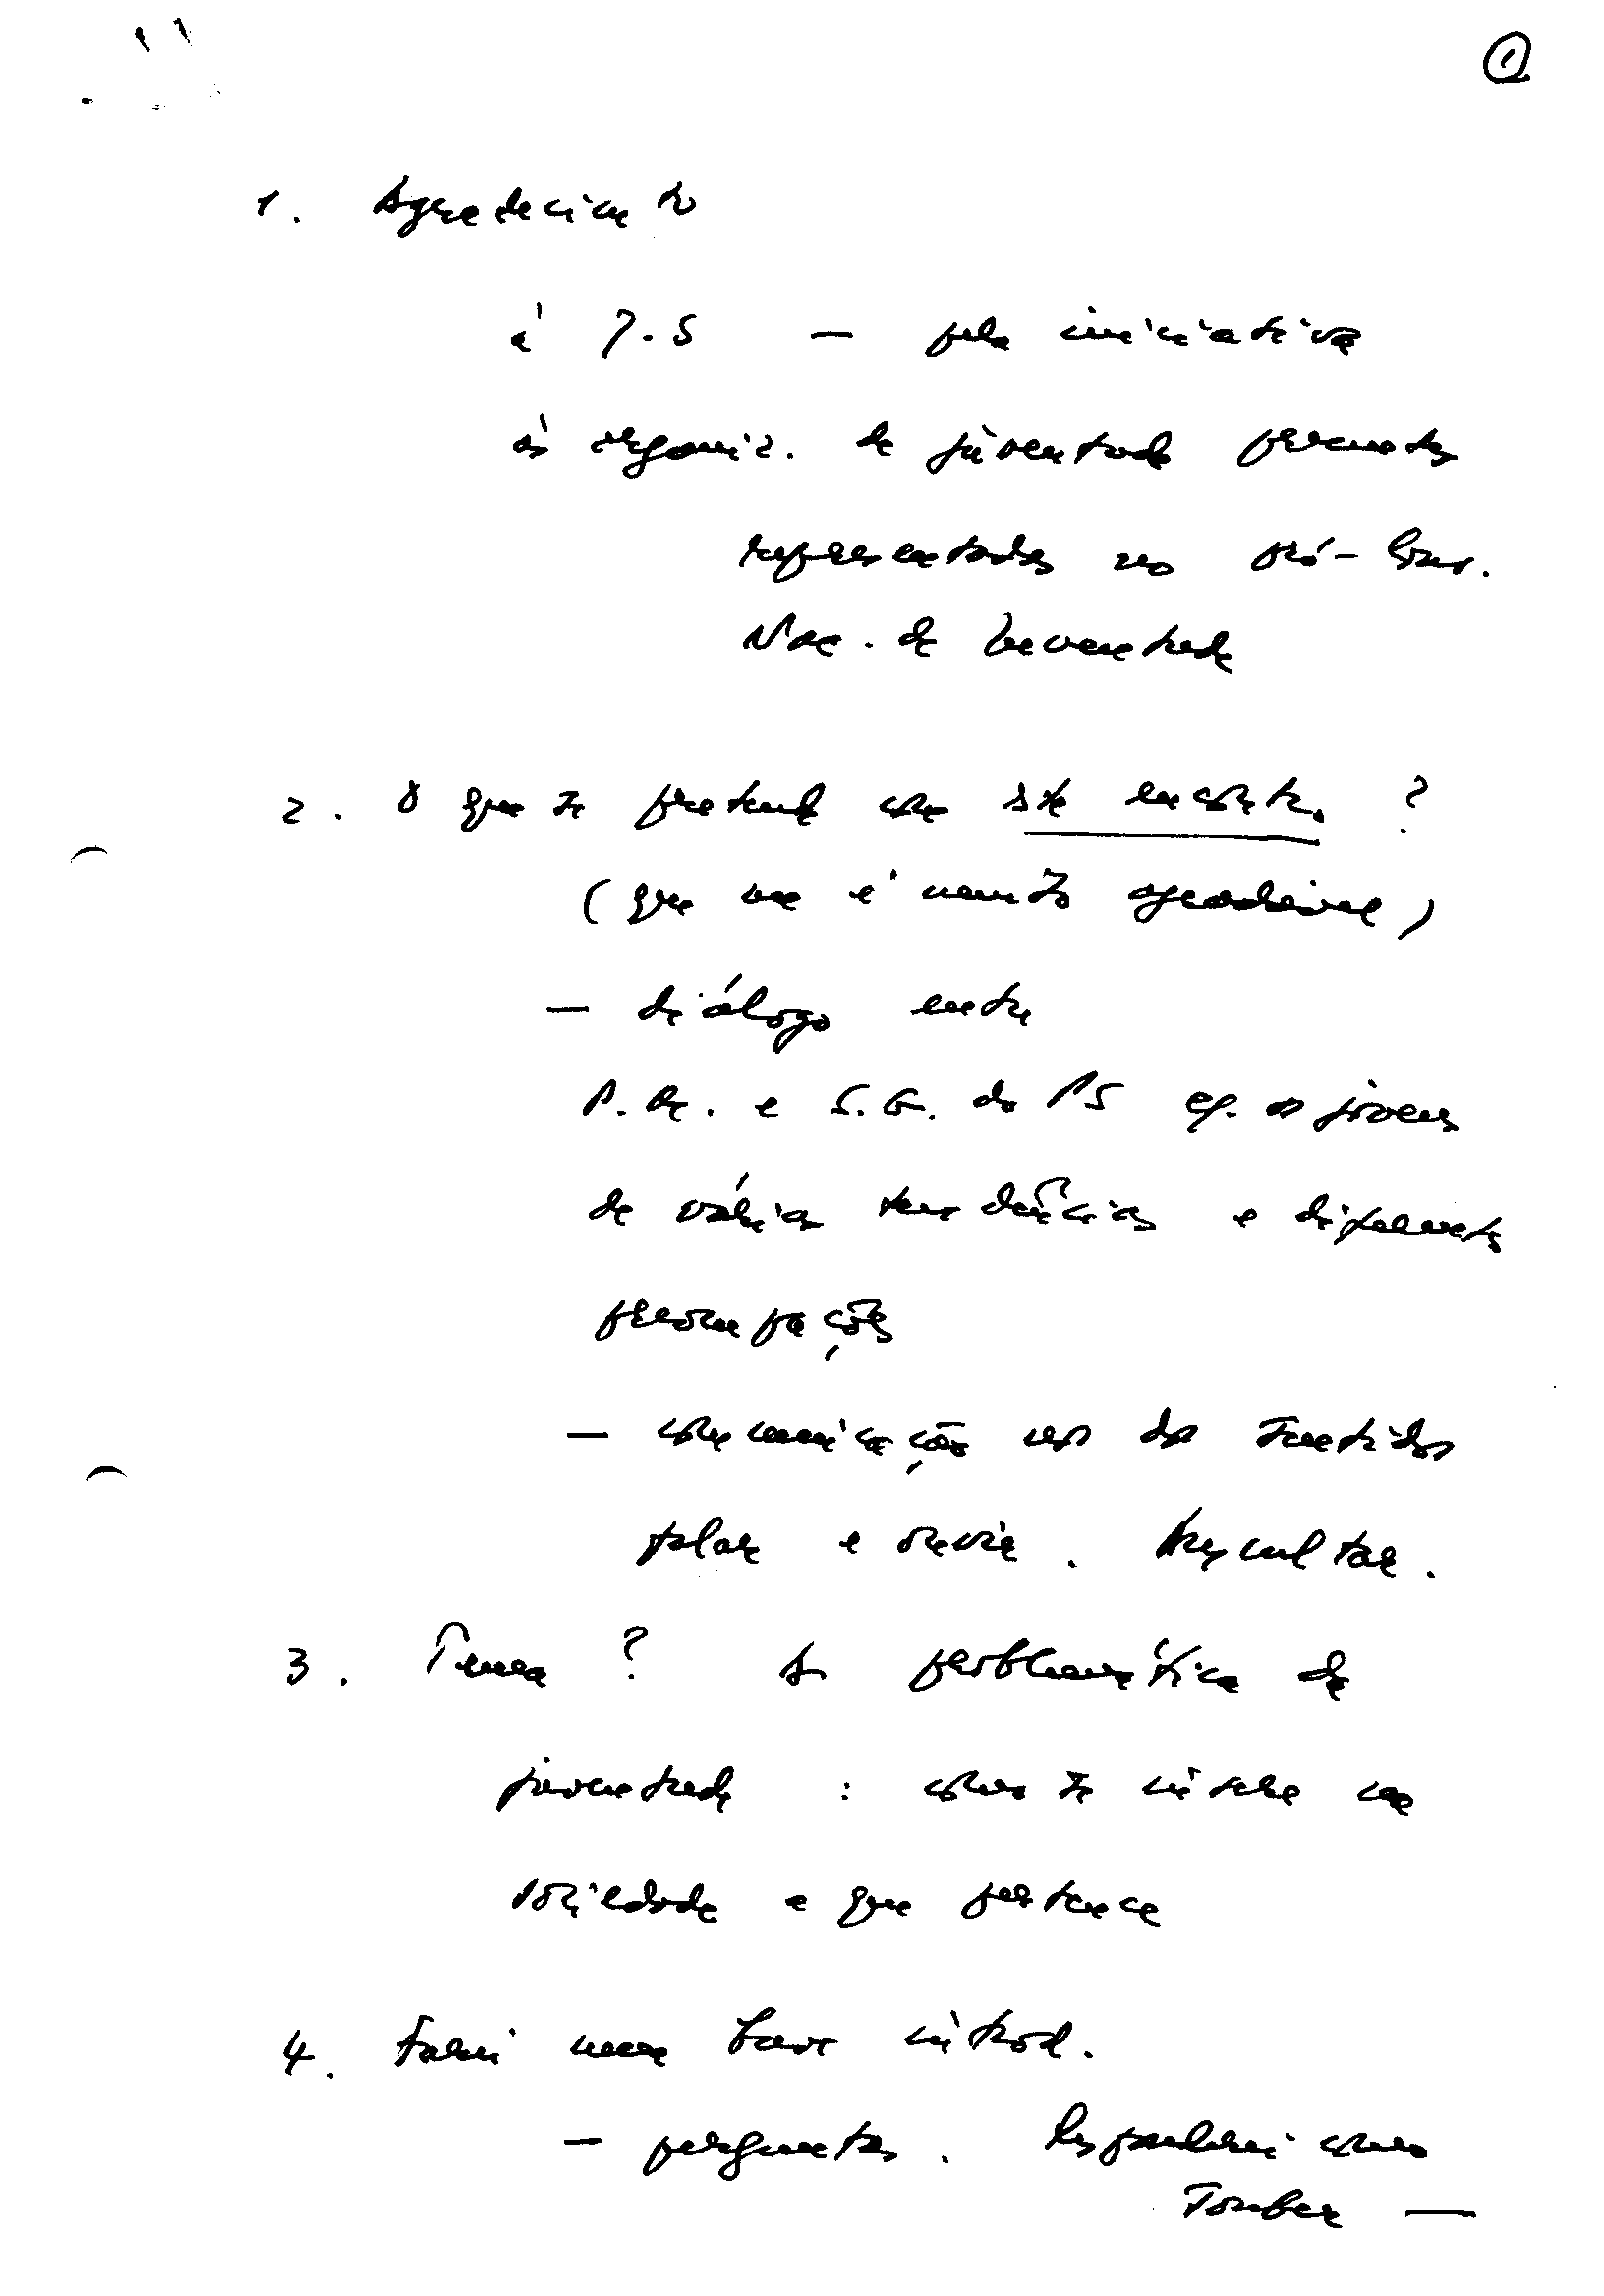 ①
1. Agradecimento
à J.S — pela iniciativa
às organiz. de juventude presentes
representadas no Pró-Cons.
Nac. de Juventude
2. O que se pretende com este encontro ?
(que me é muito agradável)
— diálogo entre
P.R. e S.G. do PS e os jovens
de várias tendências e diferentes
preocupações
— comunicação nos dois sentidos
falar e ouvir. Auscultar.
3. Tema ? A problemática da
juventude : como se insere na
sociedade a que pertence
4. Farei uma breve introd.
— perguntas. Responderei como
souber —